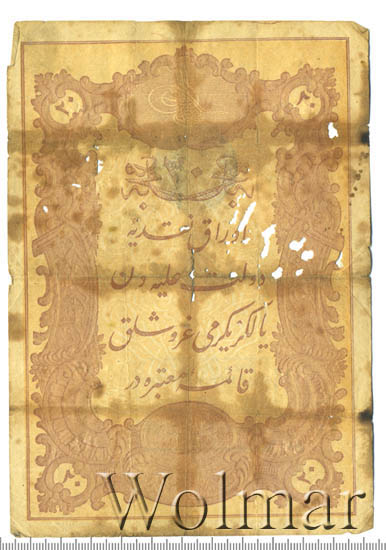 ٢٠ ٢٠
٢٠
اوراق نقديه
دولت عليه دن
يالكز يكرمى غروشلق
قائمه معتبره در
٢٠ ٢٠
Wolmar